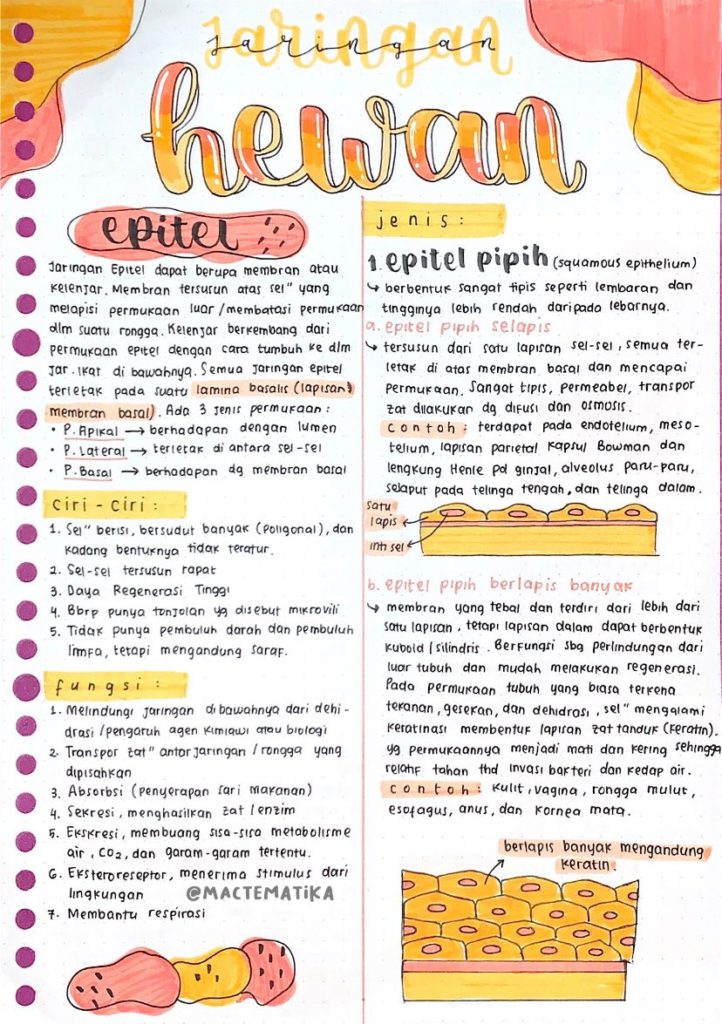 jaringan
hewan
epitel
Jaringan Epitel dapat berupa membran atau
kelenjar. Membran tersusun atas sel" yang
melapisi permukaan luar/membatasi permukaan
dlm suatu rongga. Kelenjar berkembang dari
permukaan epitel dengan cara tumbuh ke dlm
jar. ikat di bawahnya. Semua jaringan epitel
terletak pada suatu lamina basalis (lapisan)
membran basal). Ada 3 jenis permukaan:
• P. Apikal → berhadapan dengan lumen
• P. Lateral → terletak di antara sel-sel
• P. Basal → berhadapan dg membran basal
ciri-ciri:
1. Sel" berisi, bersudut banyak (poligonal), dan
kadang bentuknya tidak teratur.
2. Sel-sel tersusun rapat
3. Daya Regenerasi Tinggi
4. Bbrp punya tonjolan yg disebut mikrovili
5. Tidak punya pembuluh darah dan pembuluh
limfa, tetapi mengandung saraf.
fungsi:
1. Melindungi jaringan dibawahnya dari dehi-
drasi/pengaruh agen kimiawi atau biologi
2. Transpor zat" antarjaringan/rongga yang
dipisahkan
3. Absorbsi (penyerapan sari makanan)
4. Sekresi, menghasilkan zat/enzim
5. Ekskresi, membuang sisa-sisa metabolisme
air, CO2, dan garam-garam tertentu.
6. Eksteroreseptor, menerima stimulus dari
lingkungan
@MACTEMATIKA
7. Membantu respirasi
jenis:
1. epitel pipih (squamous epithelium)
↳ berbentuk sangat tipis seperti lembaran dan
tingginya lebih rendah daripada lebarnya.
a. epitel pipih selapis
↳ tersusun dari satu lapisan sel-sel, semua ter-
letak di atas membran basal dan mencapai
permukaan. Sangat tipis, permeabel, transpor
zat dilakukan dg difusi dan osmosis.
contoh: terdapat pada endotelium, meso-
telium, lapisan parietal kapsul Bowman dan
lengkung Henle pd ginjal, alveolus paru-paru,
selaput pada telinga tengah, dan telinga dalam.
satu
lapis
inti sel
b. epitel pipih berlapis banyak
↳ membran yang tebal dan terdiri dari lebih dari
satu lapisan, tetapi lapisan dalam dapat berbentuk
kuboid/silindris. Berfungsi sbg perlindungan dari
luar tubuh dan mudah melakukan regenerasi.
Pada permukaan tubuh yang biasa terkena
tekanan, gesekan, dan dehidrasi, sel" mengalami
keratinasi membentuk lapisan zat tanduk (keratin).
yg permukaannya menjadi mati dan kering sehingga
relatif tahan thd invasi bakteri dan kedap air.
contoh: kulit, vagina, rongga mulut,
esofagus, anus, dan kornea mata.
berlapis banyak mengandung
keratin.